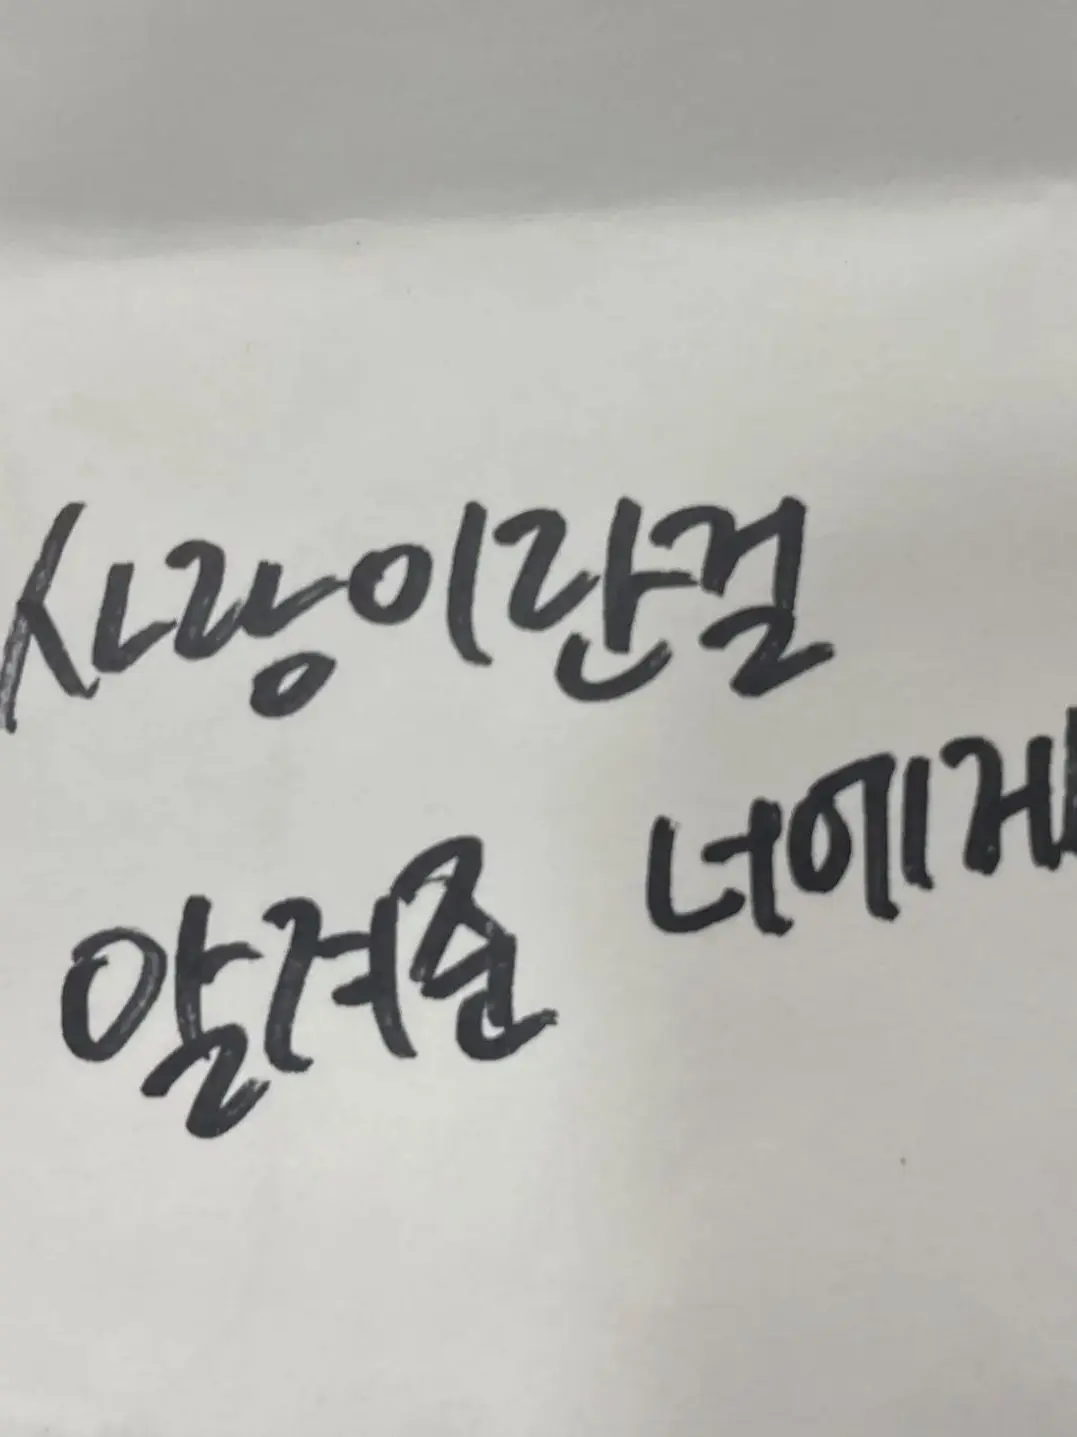 사랑이란걸
알려준 너에게